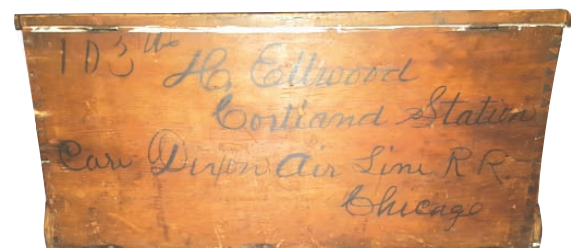 H. Ellwood
Cortland Station
Care Dixon Air Line R R.
Chicago